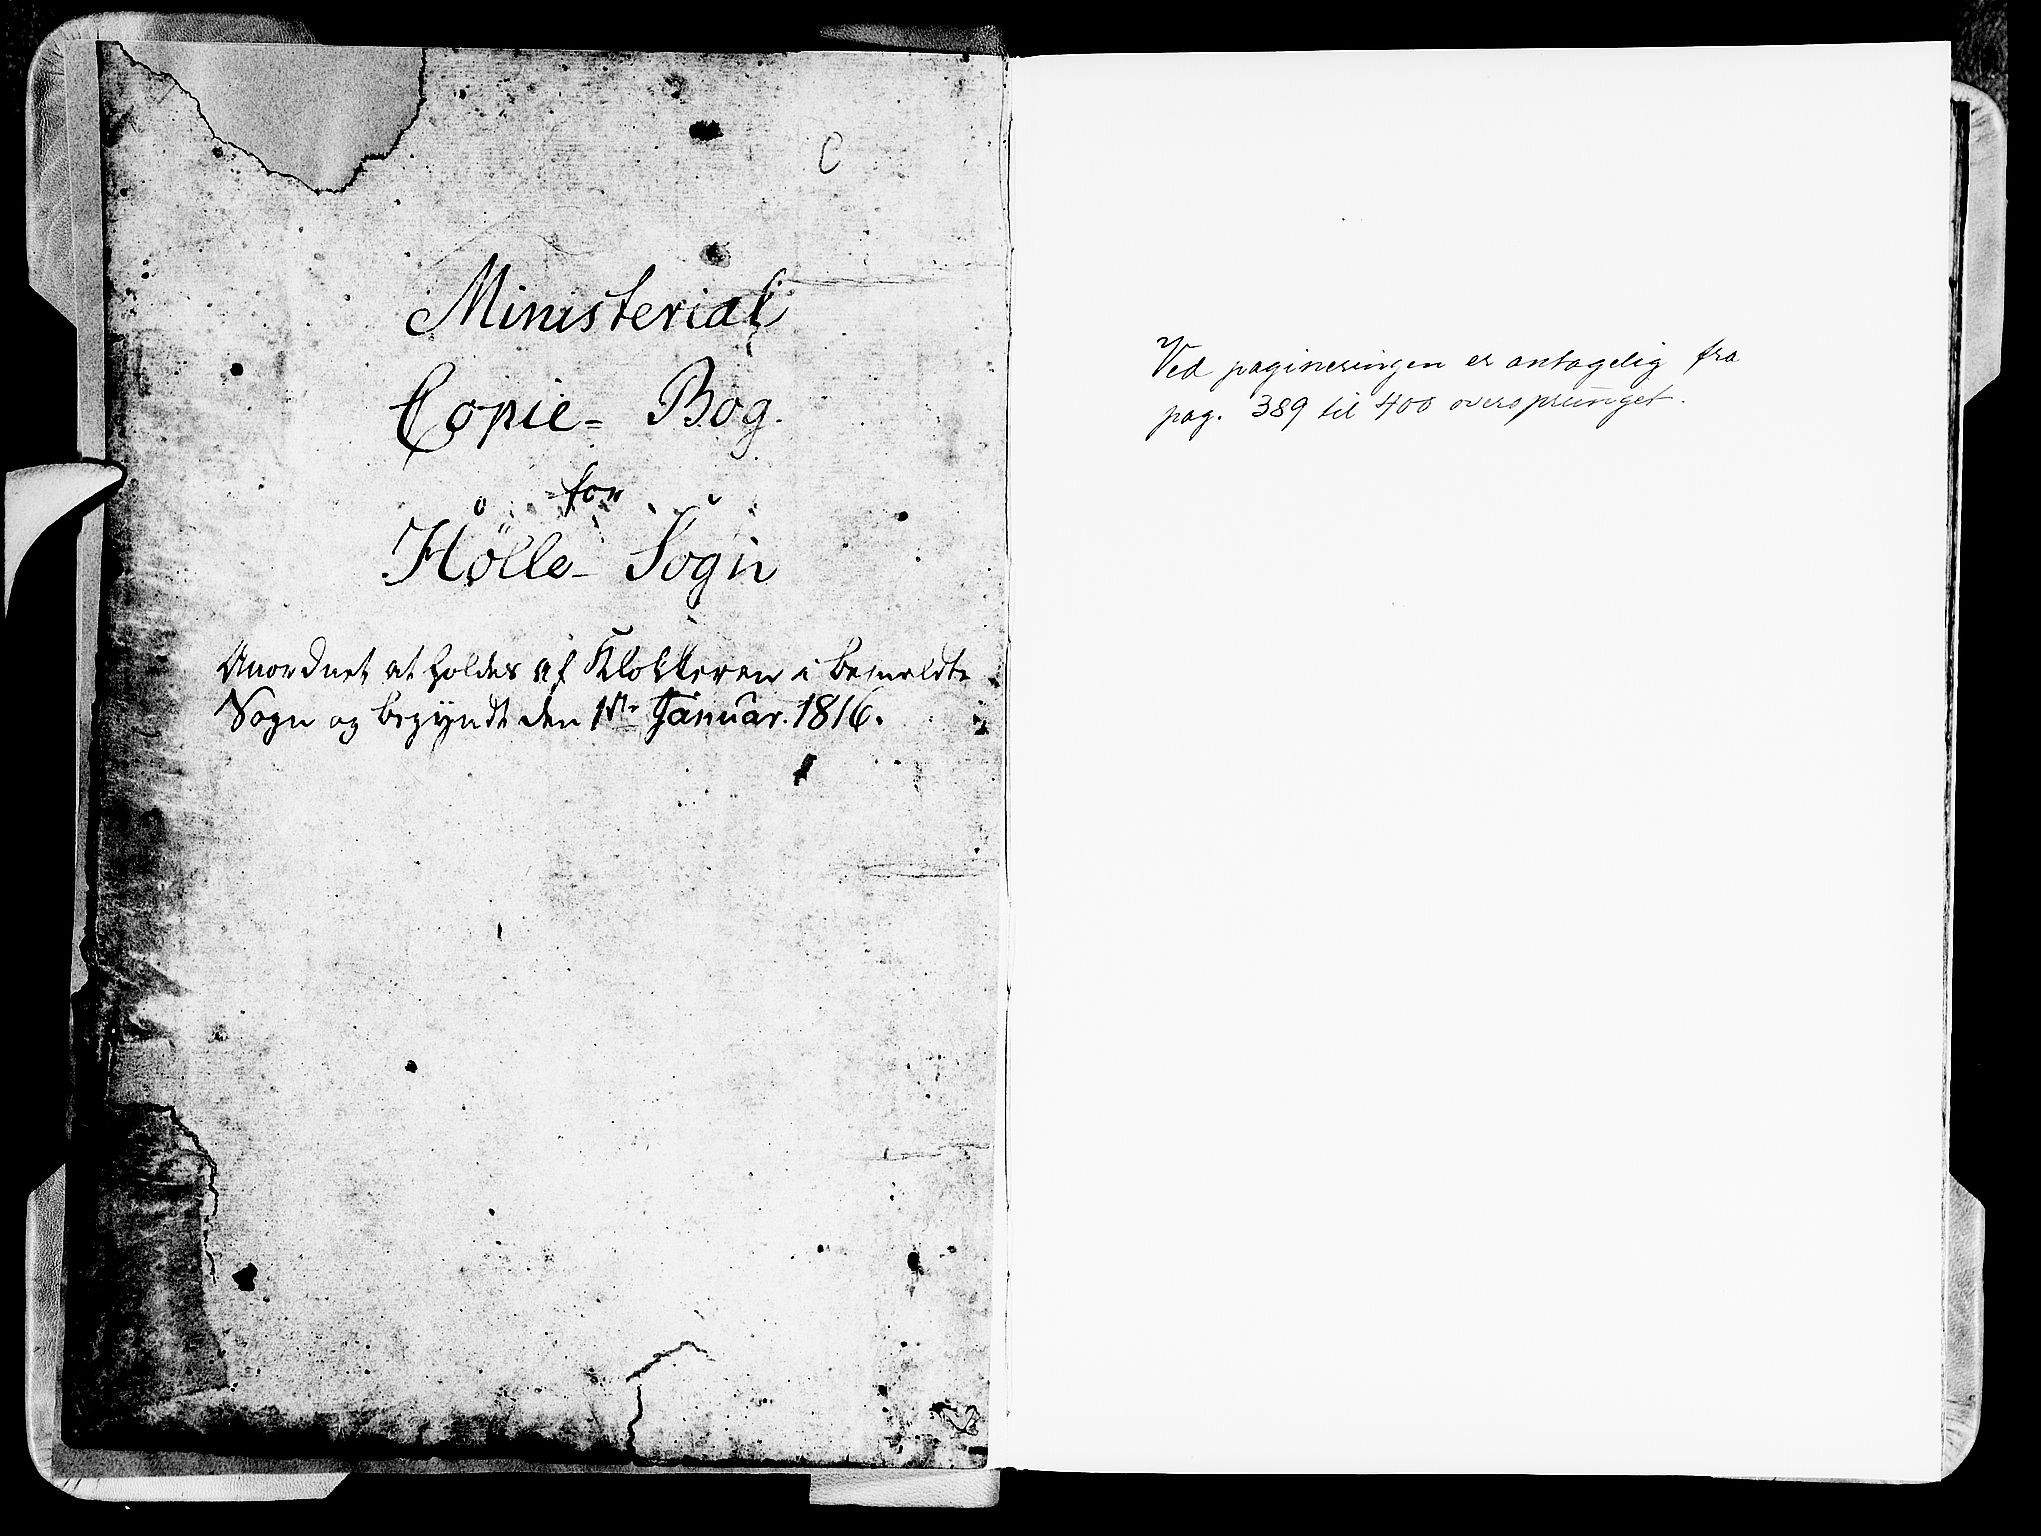 C
Ministerial
Copie= Bog.
for
Hölle- Sogn
Anordnet at holdes af Klokkeren i bemeldte
Sogn og begyndt den 1ste Januar. 1816.
Ved pagineringen er antagelig fra
pag. 389 til 400 oversprunget.